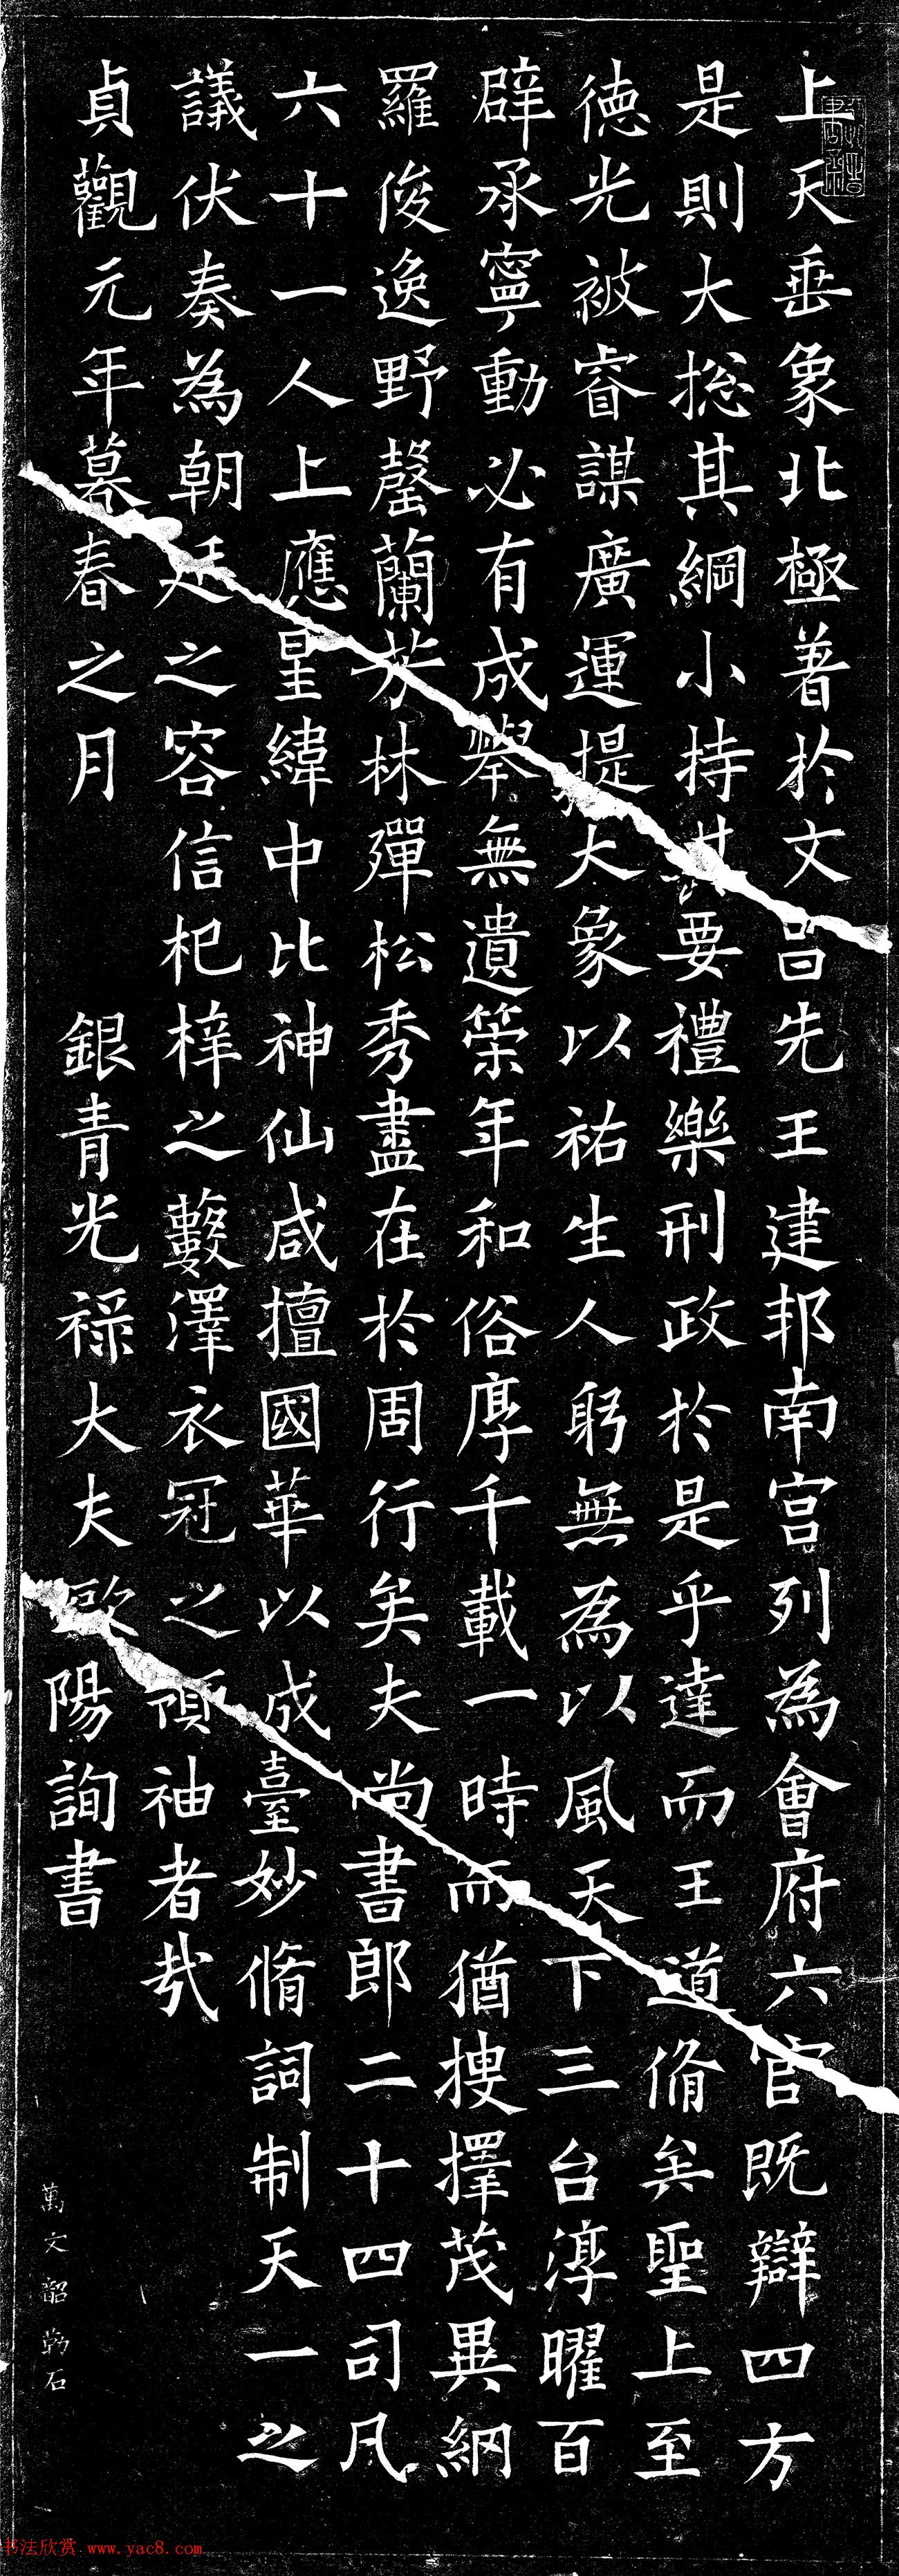 上天垂象北極著於文昌先王建邦南宮列為會府六官既辯四方
是則大揔其綱小持其要禮樂刑政於是乎達而王道脩矣聖上至
德光被睿謀廣運提大象以祐生人躬無為以風天下三台淳曜百
辟承寧動必有成舉無遺策年和俗厚千載一時而猶搜擇茂異網
羅俊逸野罄蘭芬林殫松秀盡在於周行矣夫尚書郎二十四司凡
六十一人上應星緯中比神仙咸擅國華以成臺妙脩詞制天一之
議伏奏為朝廷之容信杞梓之藪澤衣冠之領袖者哉
貞觀元年暮春之月 銀青光祿大夫歐陽詢書
萬文韶勒石
书法欣赏 www.yac8.com